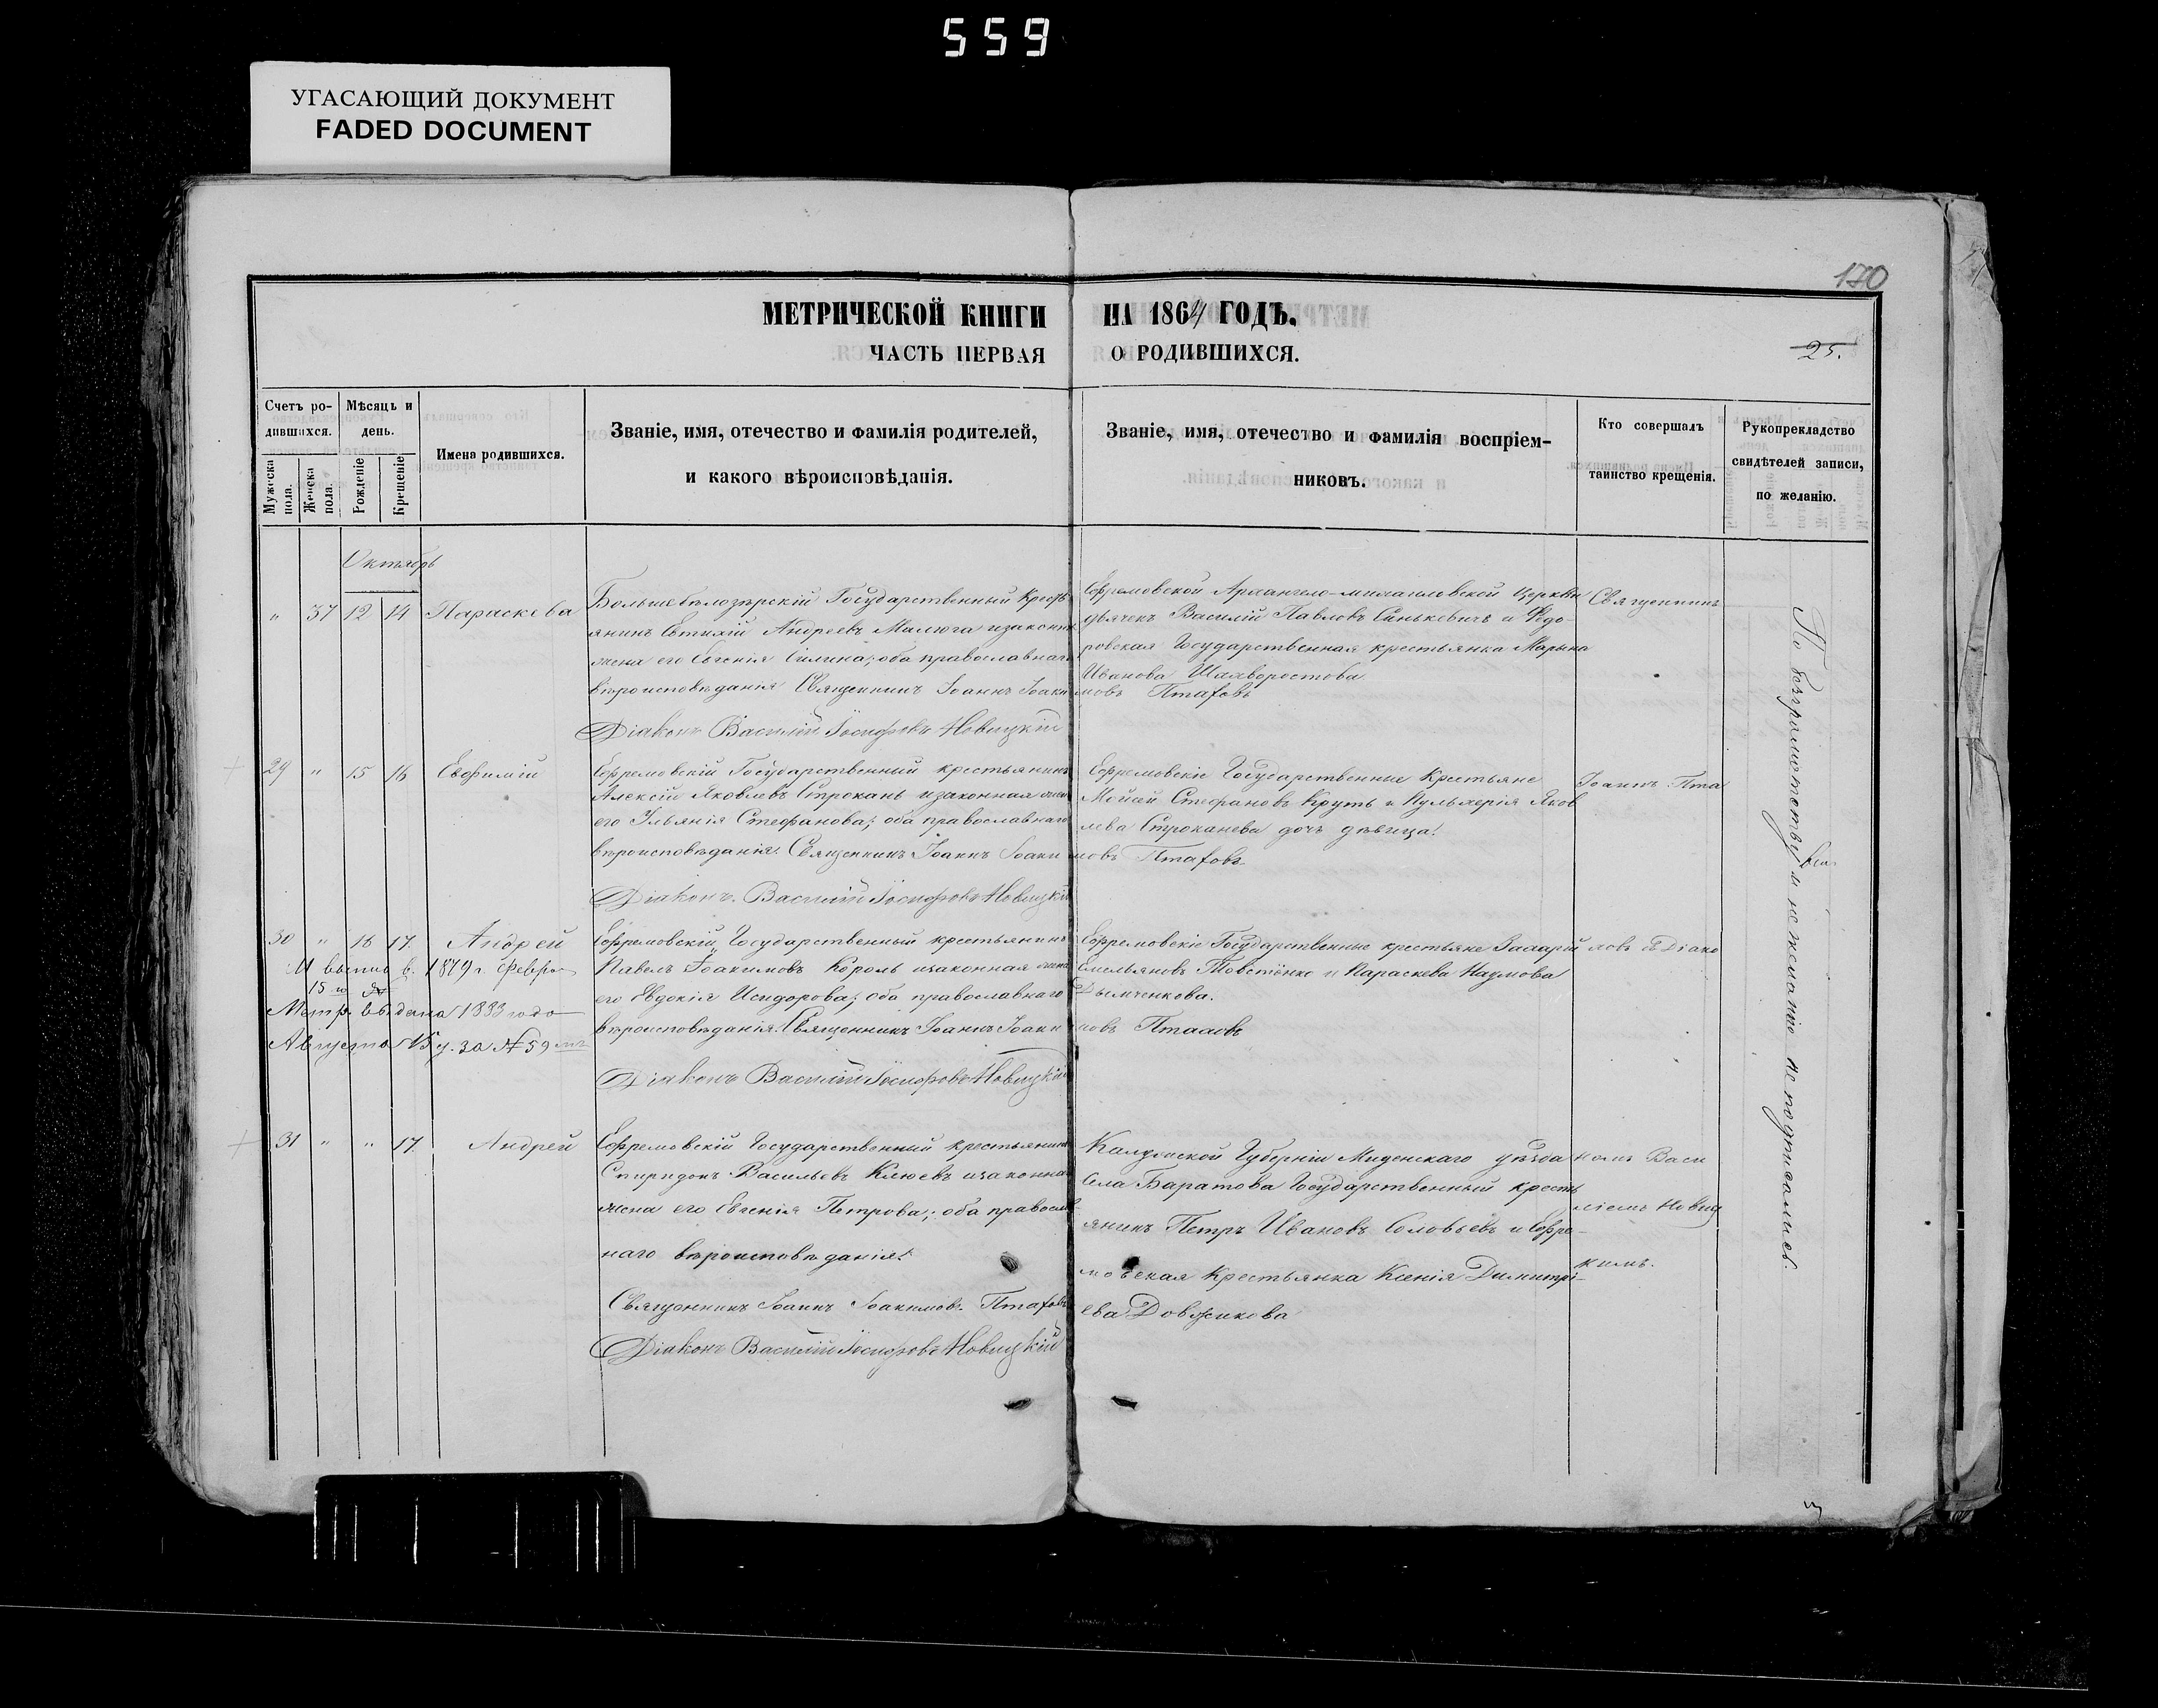 559
УГАСАЮЩИЙ ДОКУМЕНТ
FADED DOCUMENT
170
МЕТРИЧЕСКОЙ КНИГИ НА 1864 ГОДЪ.
ЧАСТЬ ПЕРВАЯ О РОДИВШИХСЯ.
25.
Счетъ ро-
дившихся.
Мужеска пола.
Женска пола.
Мѣсяцъ и
день.
Рожденіе
Крещеніе
Имена родившихся.
Званіе, имя, отечество и фамилія родителей,
и какого вѣроисповѣданія.
Званіе, имя, отечество и фамилія воспріем-
никовъ.
Кто совершалъ
таинство крещенія.
Рукоприкладство
свидѣтелей записи,
по желанію.
Октябрь
" 37 12 14 Параскева
Большебѣлозѣрскій Государственный Кресть
янинъ Евтихій Андреевъ Милюга изаконная
жена его Евгенія Силина; оба православнаго
вѣроисповѣданія Священникъ Іоаннъ Іоаки
мовъ Птаховъ
Діаконъ Василій Іосифовъ Новицкій
Ефремовской Архангело-михаиловской Церкви
дьячекъ Василій Павловъ Синькевичъ и Федо-
ровская Государственная крестьянка Марина
Иванова
Священникъ
29 " 15 16 Евфимій
Ефремовскій Государственный крестьянинъ
Алексій Яковлевъ Строкань изаконная жена
его Ульянія Стефанова; оба православнаго
вѣроисповѣданія. Священникъ Іоаннъ Іоаки
мовъ Птаховъ
Діаконъ Василій Іосифовъ Новицкій
Ефремовскіе Государственные Крестьяне
Моисей Стефановъ Круть и Пульхерія Яков
лева Строканева дочь дѣвица.
Іоаннъ Пта
30 " 16 17. Андрей
М выпис в. 1879 г. Февра
15 го
Метр. выдана 1883 года
Августа 15 д. за № 59 мъ
Ефремовскій Государственный крестьянинъ
Павелъ Іоакимовъ Король изаконная жена
его Евдокія Исидорова; оба православнаго
вѣроисповѣданія Священникъ Іоаннъ Іоаки
мовъ Птаховъ
Діаконъ Василій Іосифовъ Новицкій
Ефремовскіе Государственные крестьяне Захарій
Емельяновъ Товстенко и Параскева Наумова
Дымченкова.
ховъ Діако
31 " " 17. Андрей
Ефремовскій Государственный крестьянинъ
Спиридонъ Васильевъ Клюевъ изаконная
жена его Евгенія Петрова; оба православ
наго вѣроисповѣданія.
Священникъ Іоаннъ Іоакимовъ Птаховъ
Діаконъ Василій Іосифовъ Новицкій
Калужской Губерніи Мыденскаго уѣзда
села Баратова Государственный кресть
янинъ Петръ Ивановъ Соловьевъ и Ефре-
мовская Крестьянка Ксенія Димитрі-
ева Довженкова
номъ Васи
ліемъ Новиц
кимъ.
По безграмотству и не желанію не подписались.